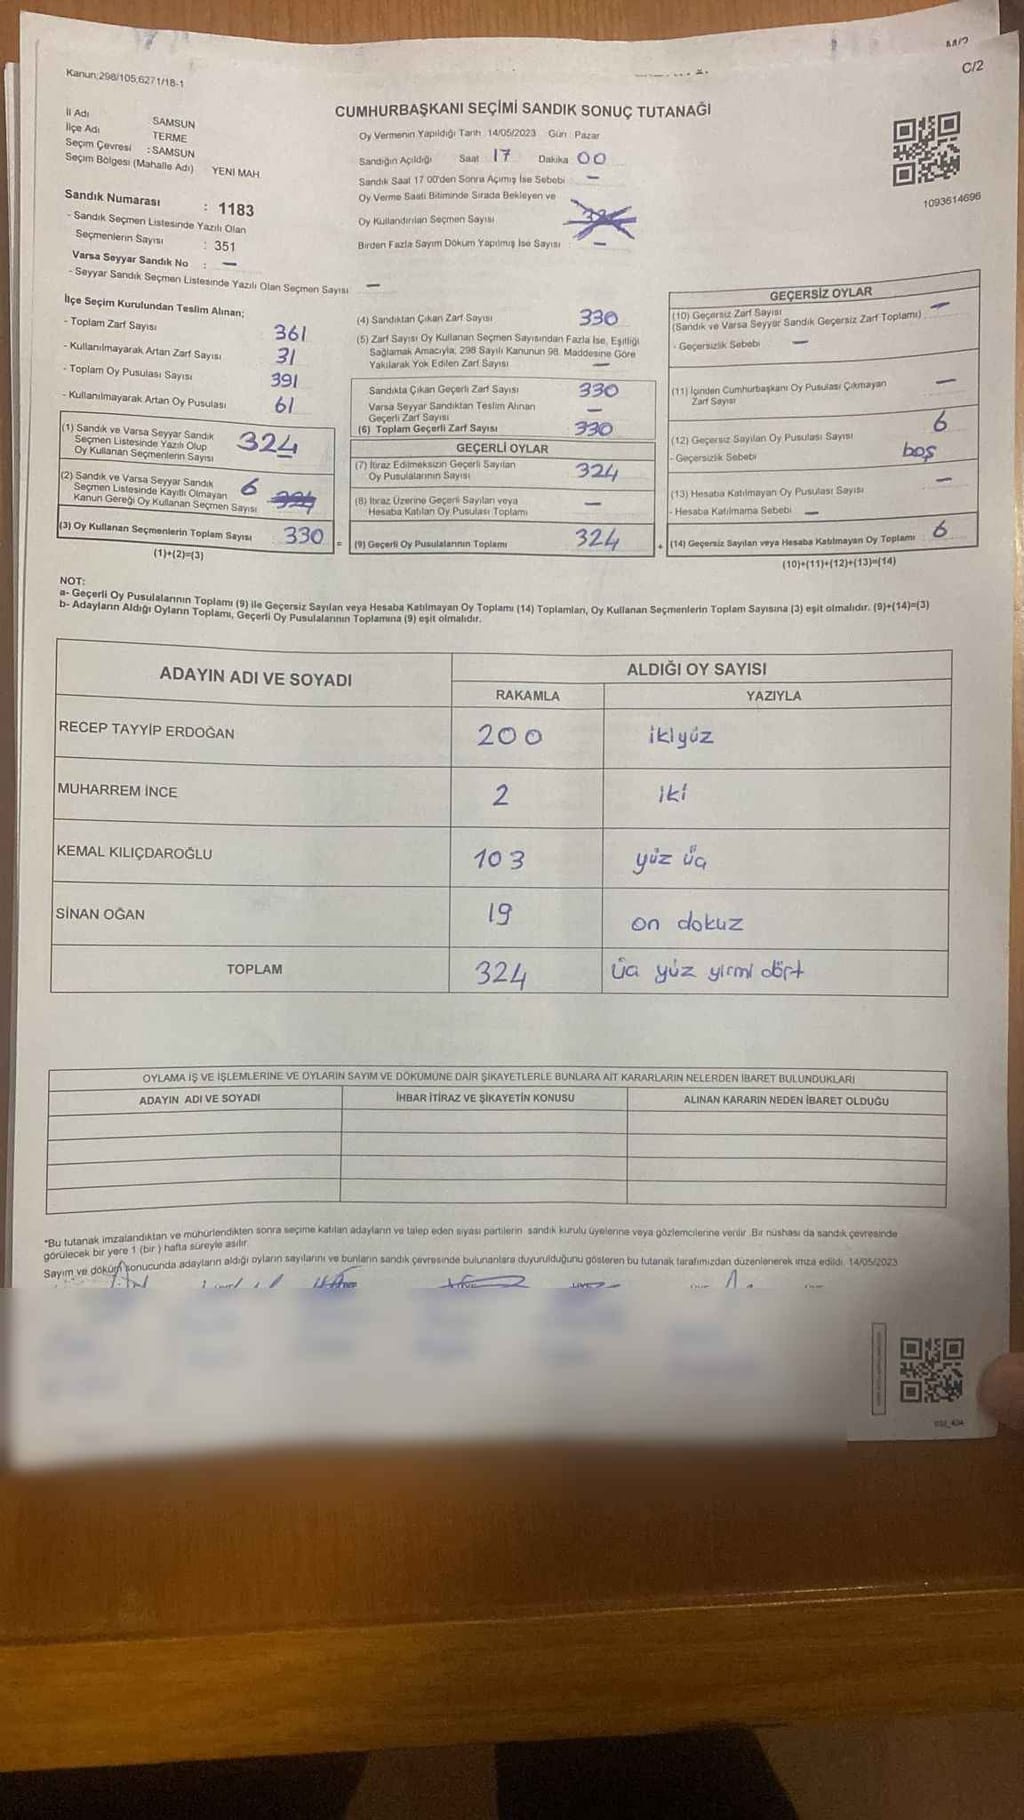 C/2
Kanun;298/105;6271/18-1
CUMHURBAŞKANI SEÇİMİ SANDIK SONUÇ TUTANAĞI
İl Adı SAMSUN
İlçe Adı TERME
Seçim Çevresi : SAMSUN
Seçim Bölgesi (Mahalle Adı) YENİ MAH.
Sandık Numarası : 1183
- Sandık Seçmen Listesinde Yazılı Olan
Seçmenlerin Sayısı : 351
Varsa Seyyar Sandık No : —
- Seyyar Sandık Seçmen Listesinde Yazılı Olan Seçmen Sayısı —
Oy Vermenin Yapıldığı Tarih 14/05/2023 Gün Pazar
Sandığın Açıldığı Saat 17 Dakika 00
Sandık Saat 17 00'den Sonra Açımış İse Sebebi —
Oy Verme Saati Bitiminde Sırada Bekleyen ve
Oy Kullandırılan Seçmen Sayısı
Birden Fazla Sayım Döküm Yapılmış İse Sayısı —
1093614696
İlçe Seçim Kurulundan Teslim Alınan;
- Toplam Zarf Sayısı 361
- Kullanılmayarak Artan Zarf Sayısı 31
- Toplam Oy Pusulası Sayısı 391
- Kullanılmayarak Artan Oy Pusulası 61
(1) Sandık ve Varsa Seyyar Sandık
Seçmen Listesinde Yazılı Olup
Oy Kullanan Seçmenlerin Sayısı 324
(2) Sandık ve Varsa Seyyar Sandık
Seçmen Listesinde Kayıtlı Olmayan
Kanun Gereği Oy Kullanan Seçmen Sayısı 6
(3) Oy Kullanan Seçmenlerin Toplam Sayısı 330
(1)+(2)=(3)
(4) Sandıktan Çıkan Zarf Sayısı 330
(5) Zarf Sayısı Oy Kullanan Seçmen Sayısından Fazla İse, Eşitliği
Sağlamak Amacıyla; 298 Sayılı Kanunun 98. Maddesine Göre
Yakılarak Yok Edilen Zarf Sayısı —
Sandıkta Çıkan Geçerli Zarf Sayısı 330
Varsa Seyyar Sandıktan Teslim Alınan
Geçerli Zarf Sayısı —
(6) Toplam Geçerli Zarf Sayısı 330
GEÇERLİ OYLAR
(7) İtiraz Edilmeksizin Geçerli Sayılan
Oy Pusulalarının Sayısı 324
(8) İtiraz Üzerine Geçerli Sayılan veya
Hesaba Katılan Oy Pusulası Toplamı —
= (9) Geçerli Oy Pusulalarının Toplamı 324
GEÇERSİZ OYLAR
(10) Geçersiz Zarf Sayısı
(Sandık ve Varsa Seyyar Sandık Geçersiz Zarf Toplamı) —
- Geçersizlik Sebebi —
(11) İçinden Cumhurbaşkanı Oy Pusulası Çıkmayan
Zarf Sayısı —
(12) Geçersiz Sayılan Oy Pusulası Sayısı 6
- Geçersizlik Sebebi boş
(13) Hesaba Katılmayan Oy Pusulası Sayısı —
- Hesaba Katılmama Sebebi —
+ (14) Geçersiz Sayılan veya Hesaba Katılmayan Oy Toplamı 6
(10)+(11)+(12)+(13)=(14)
NOT:
a- Geçerli Oy Pusulalarının Toplamı (9) ile Geçersiz Sayılan veya Hesaba Katılmayan Oy Toplamı (14) Toplamları, Oy Kullanan Seçmenlerin Toplam Sayısına (3) eşit olmalıdır. (9)+(14)=(3)
b- Adayların Aldığı Oyların Toplamı, Geçerli Oy Pusulalarının Toplamına (9) eşit olmalıdır.
ADAYIN ADI VE SOYADI ALDIĞI OY SAYISI
RAKAMLA YAZIYLA
RECEP TAYYİP ERDOĞAN 200 ikiyüz
MUHARREM İNCE 2 iki
KEMAL KILIÇDAROĞLU 103 yüz üç
SİNAN OĞAN 19 on dokuz
TOPLAM 324 üç yüz yirmi dört
OYLAMA İŞ VE İŞLEMLERİNE VE OYLARIN SAYIM VE DÖKÜMÜNE DAİR ŞİKAYETLERLE BUNLARA AİT KARARLARIN NELERDEN İBARET BULUNDUKLARI
ADAYIN ADI VE SOYADI İHBAR İTİRAZ VE ŞİKAYETİN KONUSU ALINAN KARARIN NEDEN İBARET OLDUĞU
*Bu tutanak imzalandıktan ve mühürlendikten sonra seçime katılan adayların ve talep eden siyasi partilerin sandık kurulu üyelerine veya gözlemcilerine verilir. Bir nüshası da sandık çevresinde
görülecek bir yere 1 (bir) hafta süreyle asılır.
Sayım ve döküm sonucunda adayların aldığı oyların sayılarını ve bunların sandık çevresinde bulunanlara duyurulduğunu gösteren bu tutanak tarafımızdan düzenlenerek imza edildi. 14/05/2023